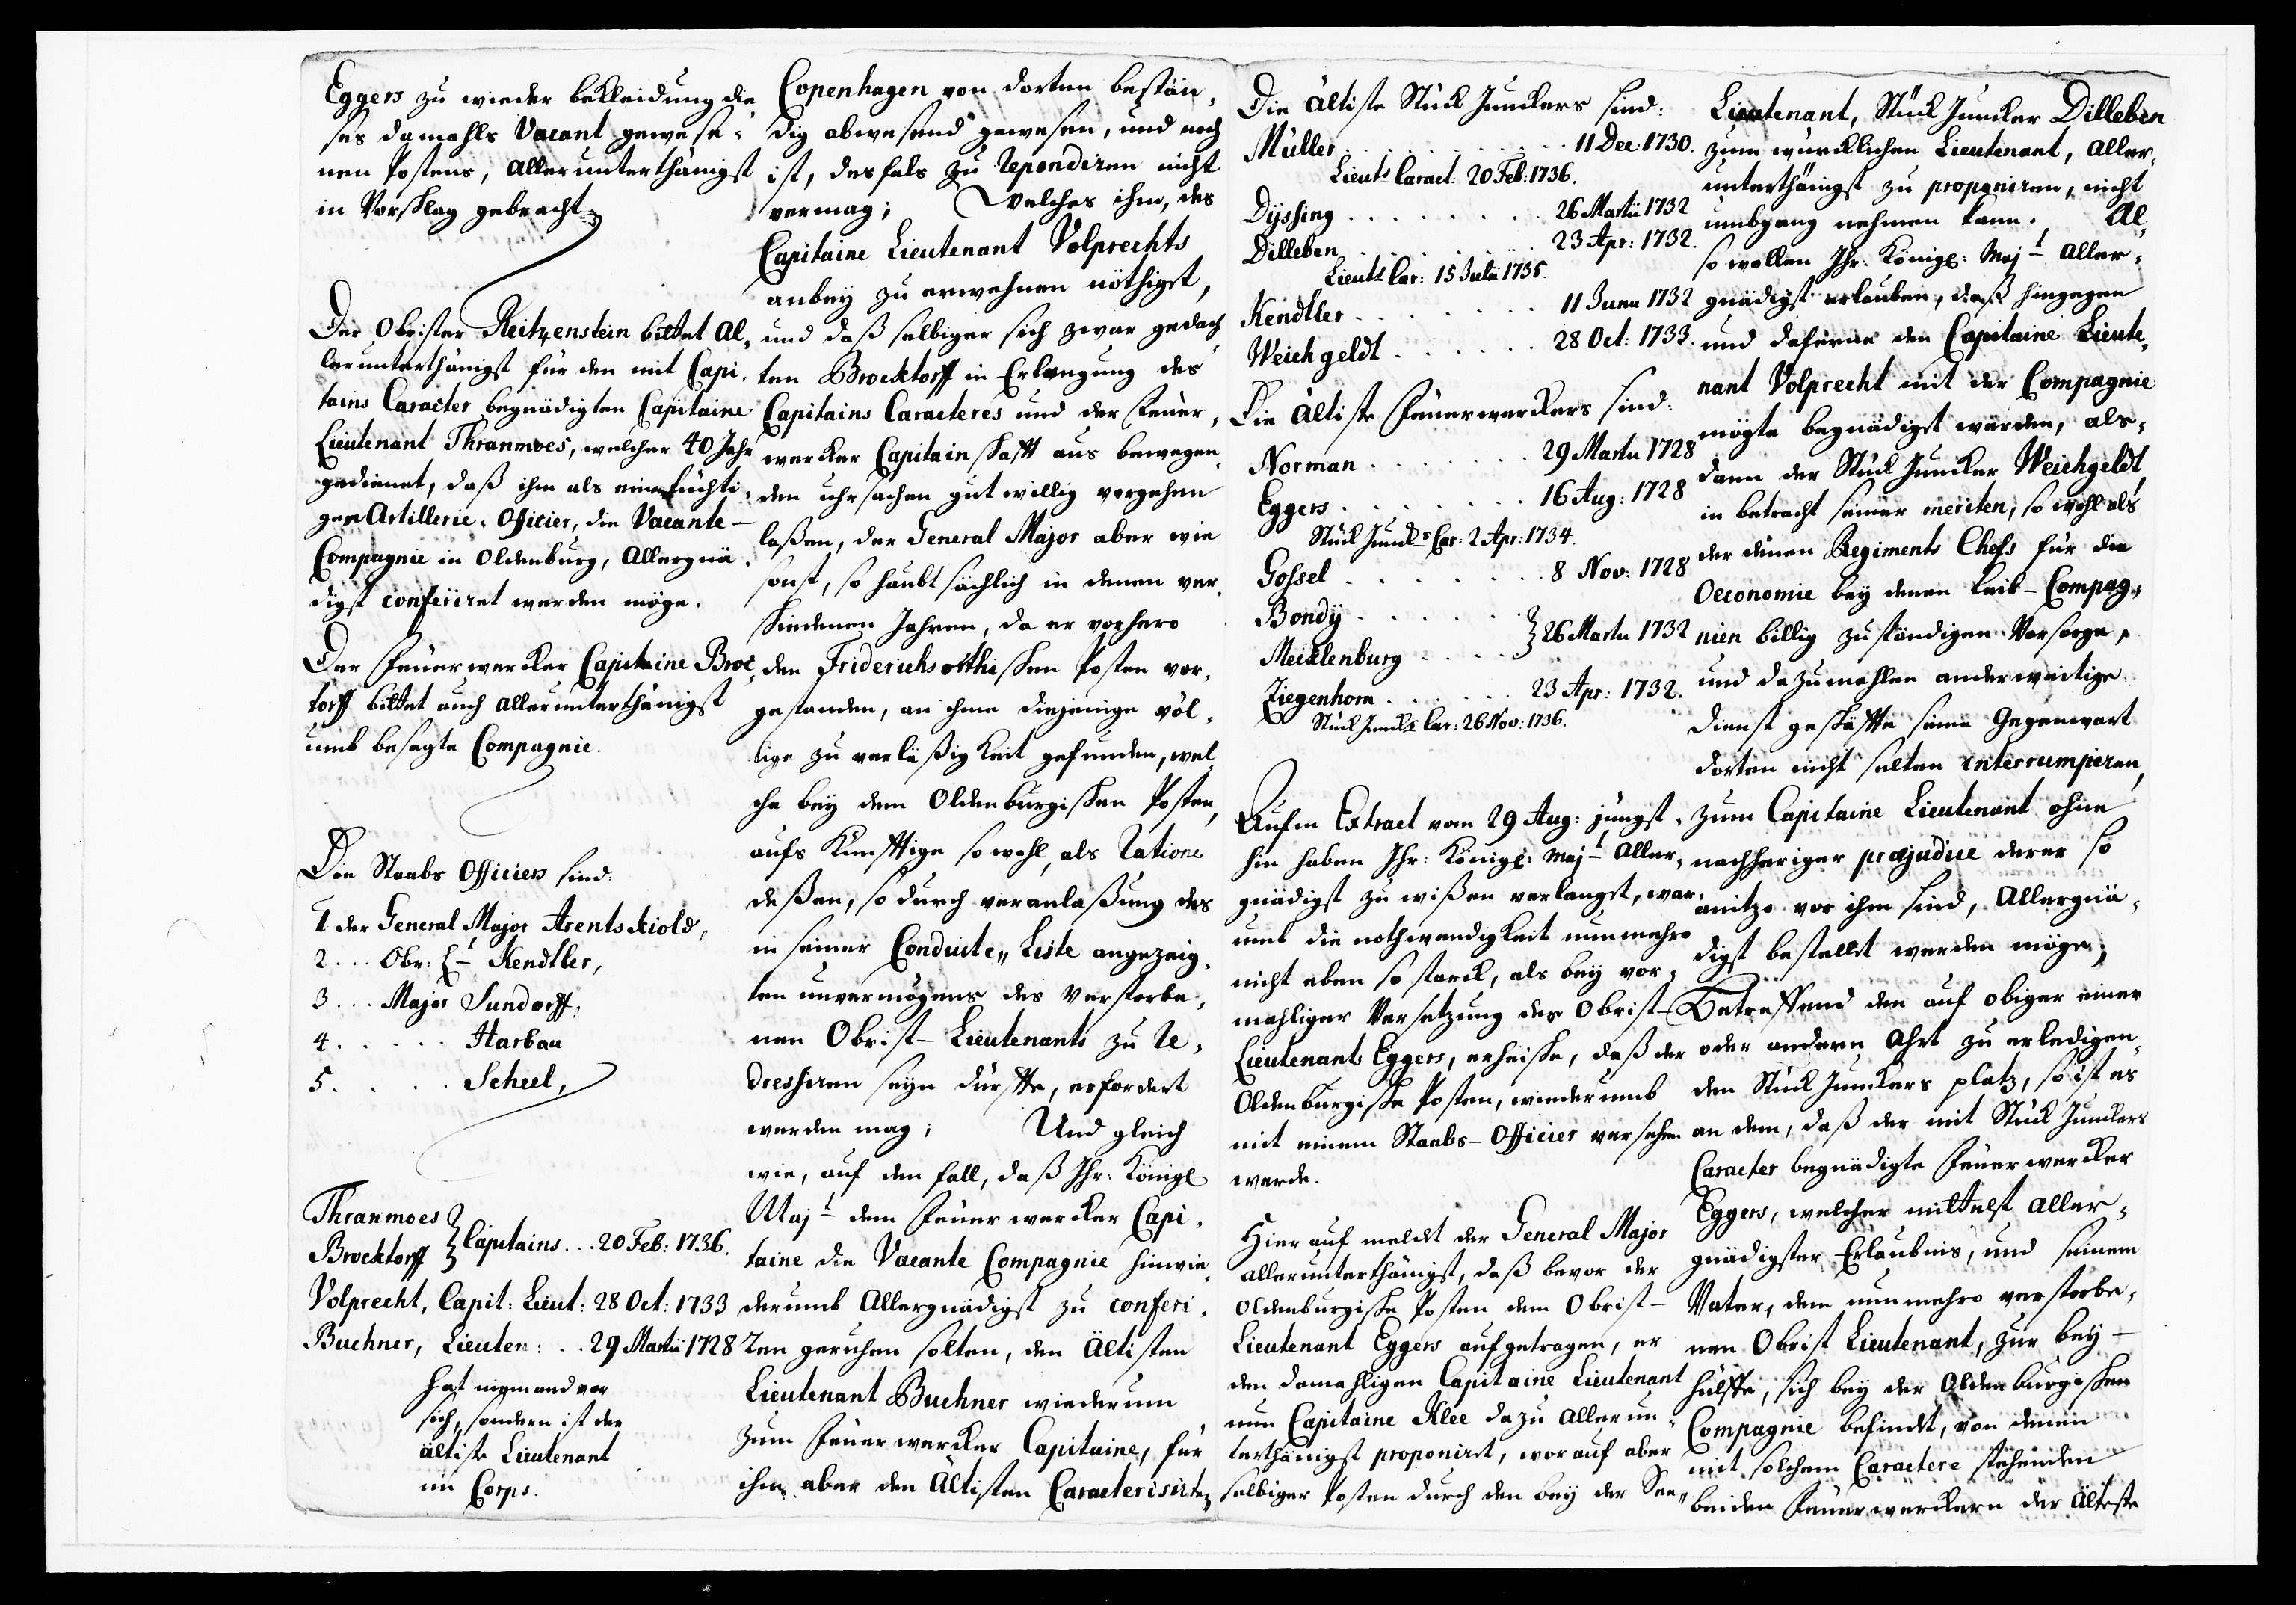 Eggers zu wieder bekleidung die
ses damahls Vacant gewese¬
nen Postens, Allerunterthänigst
in Vorschlag gebracht.
Der Obrister Reitzenstein bittet Al¬
lerunterthänigst für den mit Capi¬
tains Caracter begnädigten Capitaine
Lieutenant Thranmoes, welcher 40 Jahr
gedienet, daß ihm als eine tüchti¬
gen Artillerie-Officier, die Vacante
Compagnie in Oldenburg, Allergnä¬
digst conferiret werden möge.
Der Feuerwercker Capitaine Broc¬
torff bittet auch allerunterthänigst
umb besagte Compagnie.
Die Staabs Officiers sind:
1 der General Major Arentskiold,
2... Obr: Lt Kendtler,
3... Major Sundorff,
4..... Harbau
5..... Scheel,
Thranmoes
Brocktorff } Capitains... 20 Feb: 1736.
Volprecht, Capit: Lieut: 28 Oct: 1733
Buchner, Lieuten:.. 29 Martii 1728
hat niemand vor
sich, sondern ist der
ältiste Lieutenant
im Corps.
Copenhagen von dorten bestän¬
dig abwesend gewesen, und noch
ist, desfals zu repondiren nicht
vermag; Welches ihm, des
Capitaine Lieutenant Volprechts
anbey zu erwehnen nöthiget,
und daß selbiger sich zwar gedach
ten Brocktorff in Erlangung des
Capitains Caracteres und der Feuer¬
wercker Capitainschafft aus bewegen¬
den uhrsachen gutwillig vorgehen
laßen, der General Major aber wie
sonst, so haubtsächlich in denen ver¬
schiedenen Jahren, da er vorhero
den Friderichsorthischen Posten vor¬
gestanden, an ihme diejenige völ¬
lige zuverläßigkeit gefunden, wel¬
che bey dem Oldenburgischen Posten,
aufs Künfftige sowohl, als ratione
deßen, so durch veranlaßung des
in seiner Conduite-Liste angezeig¬
ten unvermögens des Verstorbe¬
nen Obrist-Lieutenants zu re¬
dressiren seyn dürffte, erfordert
werden mag; Und gleich
wie, auf den fall, daß Ihr: Königl
Majt dem Feuerwercker Capi¬
taine die Vacante Compagnie hinwie
derumb Allergnädigst zu conferi¬
ren geruhen solten, den Ältisten
Lieutenant Buchner wiederum
zum Feuerwercker Capitaine, für
ihm aber den Ältisten Caracterisirten
Die Ältiste Stück Junckers sind:
Müller.......... 11 Dec: 1730.
Lieuts Caract: 20 Feb: 1736.
Dyssing........ 26 Martii 1732
Dilleben........ 23 Apr: 1732.
Lieuts Car: 15 Julii 1735.
Kendtler........ 11 Junii 1732
Weichgeldt...... 28 Oct: 1733.
Die Ältiste Feuerwerckers sind:
Norman....... 29 Martii 1728
Eggers........ 16 Aug: 1728
Stück Junckrs Car: 2 Apr: 1734.
Gossel........ 8 Nov: 1728
Bondÿ......
Mecklenburg.... } 26 Martii 1732
Ziegenhorn...... 23 Apr: 1732.
Stück Juncks Car: 26 Nov: 1736.
Aufm Extract vom 29 Aug: jüngst¬
hin haben Ihr: Königl: Majt Aller¬
gnädigst zu wißen verlangt, war¬
umb die nothwendigkeit nunmehro
nicht eben so starck, als bey vor¬
mahliger Versetzung des Obrist-
Lieutenants Eggers, erheische, daß der
Oldenburgische Posten, wiederumb
mit einem Staabs-Officier versehen
werde.
Hierauf meldet der General Major
allerunterthänigst, daß bevor der
Oldenburgische Posten dem Obrist-
Lieutenant Eggers aufgetragen, er
den damahligen Capitaine Lieutenant
nun Capitaine Klee dazu Allerun¬
terthänigst proponiret, worauf aber
selbiger Posten durch den bey der See¬
Lieutenant, Stück Juncker Dilleben
zum würcklichen Lieutenant, Aller¬
unterthänigst zu proponiren, nicht
umbgang nehmen kann. Al¬
so wollen Ihr: Königl: Majt Aller¬
gnädigst erlauben, daß hingegen
und daferne den Capitaine Lieute¬
nant Volprecht mit der Compagnie
mögte begnädiget werden, als¬
dann der Stück Juncker Weichgeldt,
in betracht seiner meriten, so wohl als
der denen Regiments Chefs für die
Oeconomie bey denen Leib-Compag¬
nien billig zuständigen Vorsorge,
und dazumahlen anderweitige
dienst geschäffte seine Gegenwart
dorten nicht selten interrumpiren,
zum Capitaine Lieutenant ohne
nachheriger præjudice derer so
anitzo vor ihm sind, Allergnä¬
digst bestellet werden möge;
Betreffend den auf obiger einer
oder andern Ahrt zu erledigen¬
den Stück Junckers platz, so ist es
an dem, daß der mit Stück Junckers
Caracter begnädigte Feuerwercker
Eggers, welcher mittelst Aller¬
gnädigster Erlaubnis, und seinem
Vater, dem nunmehro verstorbe¬
nen Obrist Lieutenant, zur bey-
hülffe, sich bey der Oldenburgischen
Compagnie befindet, von denen
mit solchem Caractere stehenden
beiden Feuerwerckern der Älteste